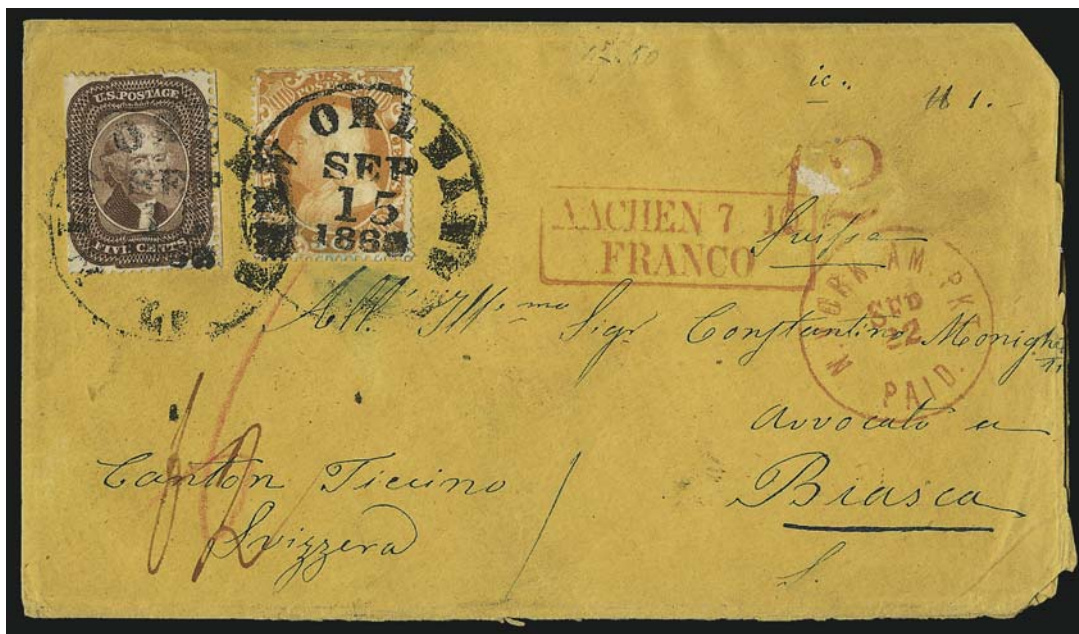 U.S. POSTAGE
FIVE CENTS
U.S. POSTAGE
ORLEANS
SEP
15
AACHEN 7
FRANCO
N. YORK AM. PKT.
SEP
22
PAID.
ic.
Suissa
All' Ill.mo Sigr Constantino Monighetti
Avvocato a
Biasca
Canton Ticino
Svizzera
S.